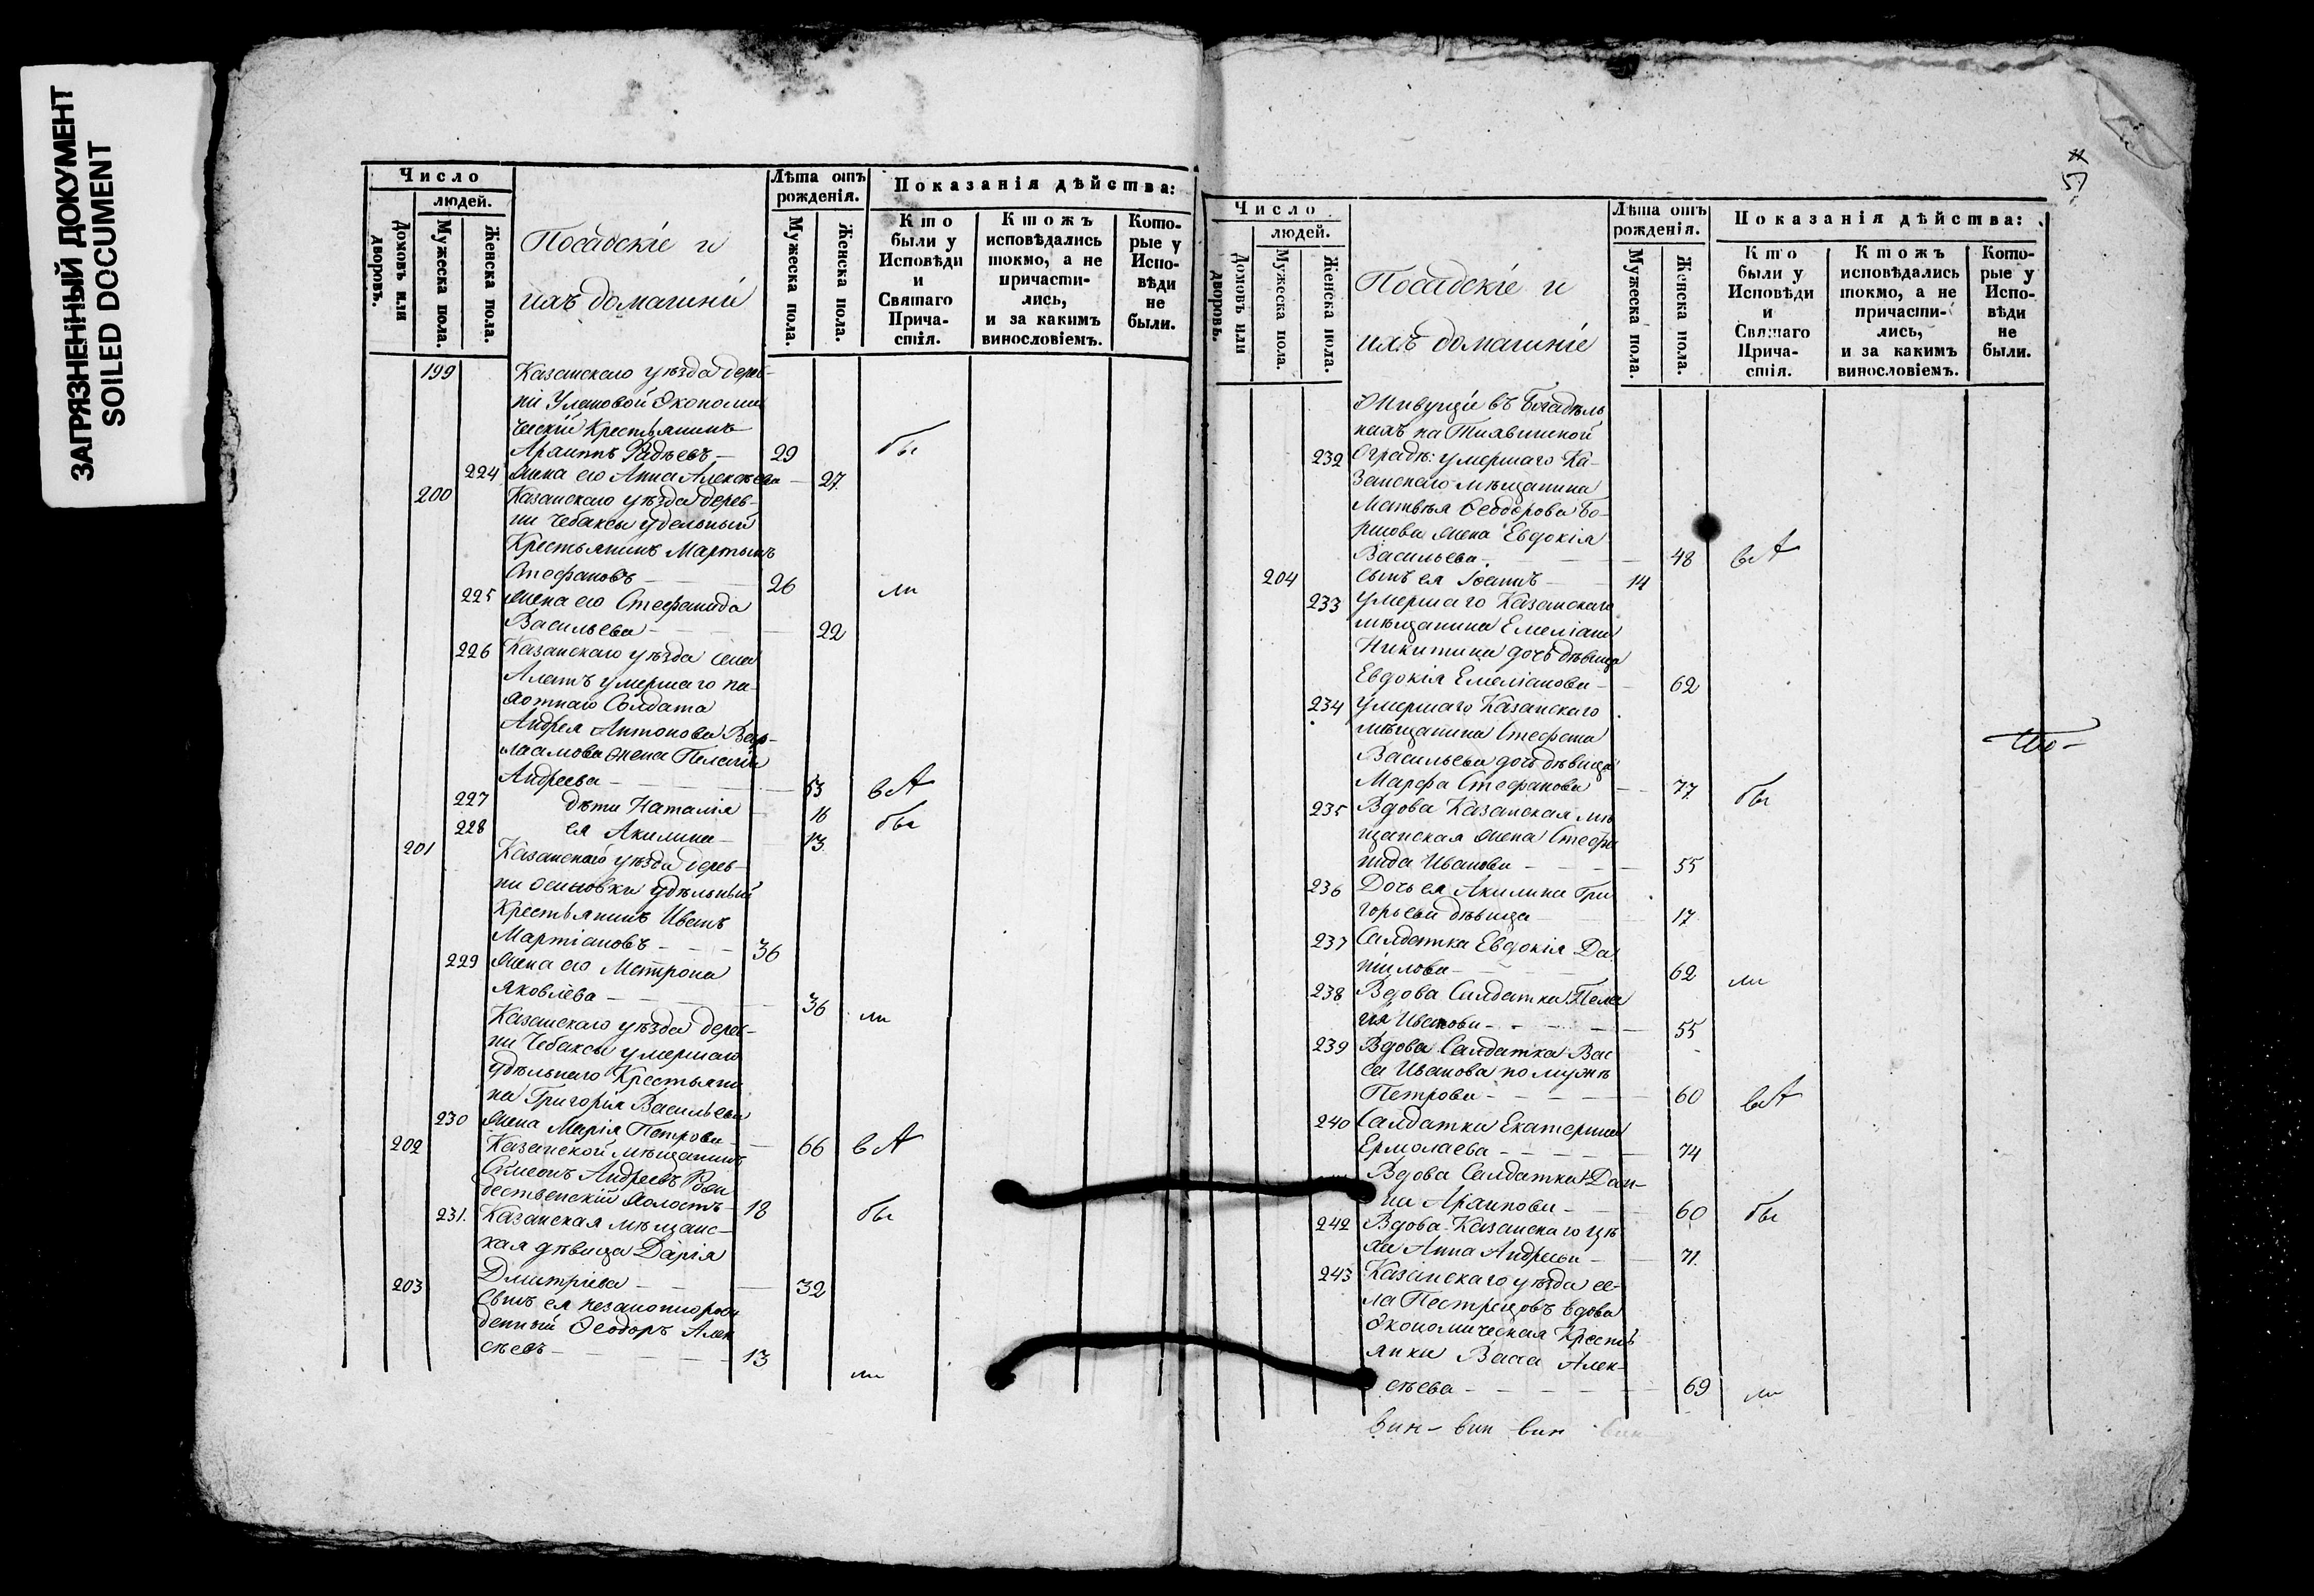 ЗАГРЯЗНЕННЫЙ ДОКУМЕНТ
SOILED DOCUMENT
Число
людей.
Домовъ или дворовъ.
Мужеска пола.
Женска пола.
Посадскіе и
ихъ домашніи
Лѣта отъ рожденія.
Мужеска пола.
Женска пола.
Показанія дѣйства:
Кто были у Исповѣди и Святаго Причастія.
Ктожъ исповѣдались токмо, а не причастились, и за какимъ винословіемъ.
Которые у Исповѣди не были.
199 Казанскаго уѣзда дерев-
ни Улановой Экономи
ческій Крестьянинъ
Архиппъ Фадѣевъ — 29 бы
224 жена его Анна Алексѣева — 27
200 Казанскаго уѣзда дерев-
ни Чебаксы удельный
Крестьянинъ Мартынъ
Стефановъ — 26 ли
225 жена его Стефанида
Васильева — 22
226 Казанскаго уѣзда села
умершаго па-
хотнаго Солдата
Андрея Антонова Вар-
лаамова жена Пелагія
Андреева — 53 вА
227 дѣти Наталія — 16 бы
228 ея Акилина — 13
201 Казанскаго уѣзда дерев-
ни Осиновки удѣльный
Крестьянинъ Иванъ
Мартіановъ — 36
229 жена его Матрона
Яковлева — 36 ли
Казанскаго уѣзда дерев-
ни Чебаксы умершаго
удѣльнаго Крестьяни
на Григорія Васильева
230 жена Марія Петрова — 66 вА
202 Казанской мѣщанинъ
Симеонъ Андреевъ Рож
дественскій холостъ — 18 бы
231. Казанская мѣщанс-
кая дѣвица Дарія
Дмитріева — 32
203 Сынъ ея незаконорож
денный Ѳеодоръ Алек
сѣевъ — 13 ли
57
Число
людей.
Домовъ или дворовъ.
Мужеска пола.
Женска пола.
Посадскіе и
ихъ домашніе
Лѣта отъ рожденія.
Мужеска пола.
Женска пола.
Показанія дѣйства:
Кто были у Исповѣди и Святаго Причастія.
Ктожъ исповѣдались токмо, а не причастились, и за какимъ винословіемъ.
Которые у Исповѣди не были.
Живущіе въ Богадѣль
няхъ на Тихвинской
232 Оградѣ: умершаго Ка-
занскаго мѣщанина
Матвѣя Ѳеодорова Бо-
рисова жена Евдокія
Васильева — 48 вА
204 сынъ ея Іоаннъ — 14
233 умершаго Казанскаго
мѣщанина Емеліана
Никитина дочь дѣвица
Евдокія Емеліанова — 62
234 умершаго Казанскаго
мѣщанина Стефана
Васильева дочь дѣвица
Марфа Стефанова — 77 бы
235 Вдова Казанская мѣ
щанская жена Стефа
нида Иванова — 55
236 Дочь ея Акилина Гри
горьева дѣвица — 17
237 Салдатка Евдокія Да
ніилова — 62 ли
238 Вдова Салдатка Пела
гія Иванова — 55
239 Вдова Салдатка Вас
са Иванова по мужѣ
Петрова — 60 вА
240 Салдатка Екатерина
Ермолаева — 74
Вдова Салдатка
Архипова — 60 бы
242 Вдова Казанскаго цѣ
ха Анна Андреева — 71.
243 Казанскаго уѣзда се-
ла Пестрецовъ вдова
Экономическая Кресть
янка Васса Алек-
сѣева — 69 ли
вин- вин вин вин